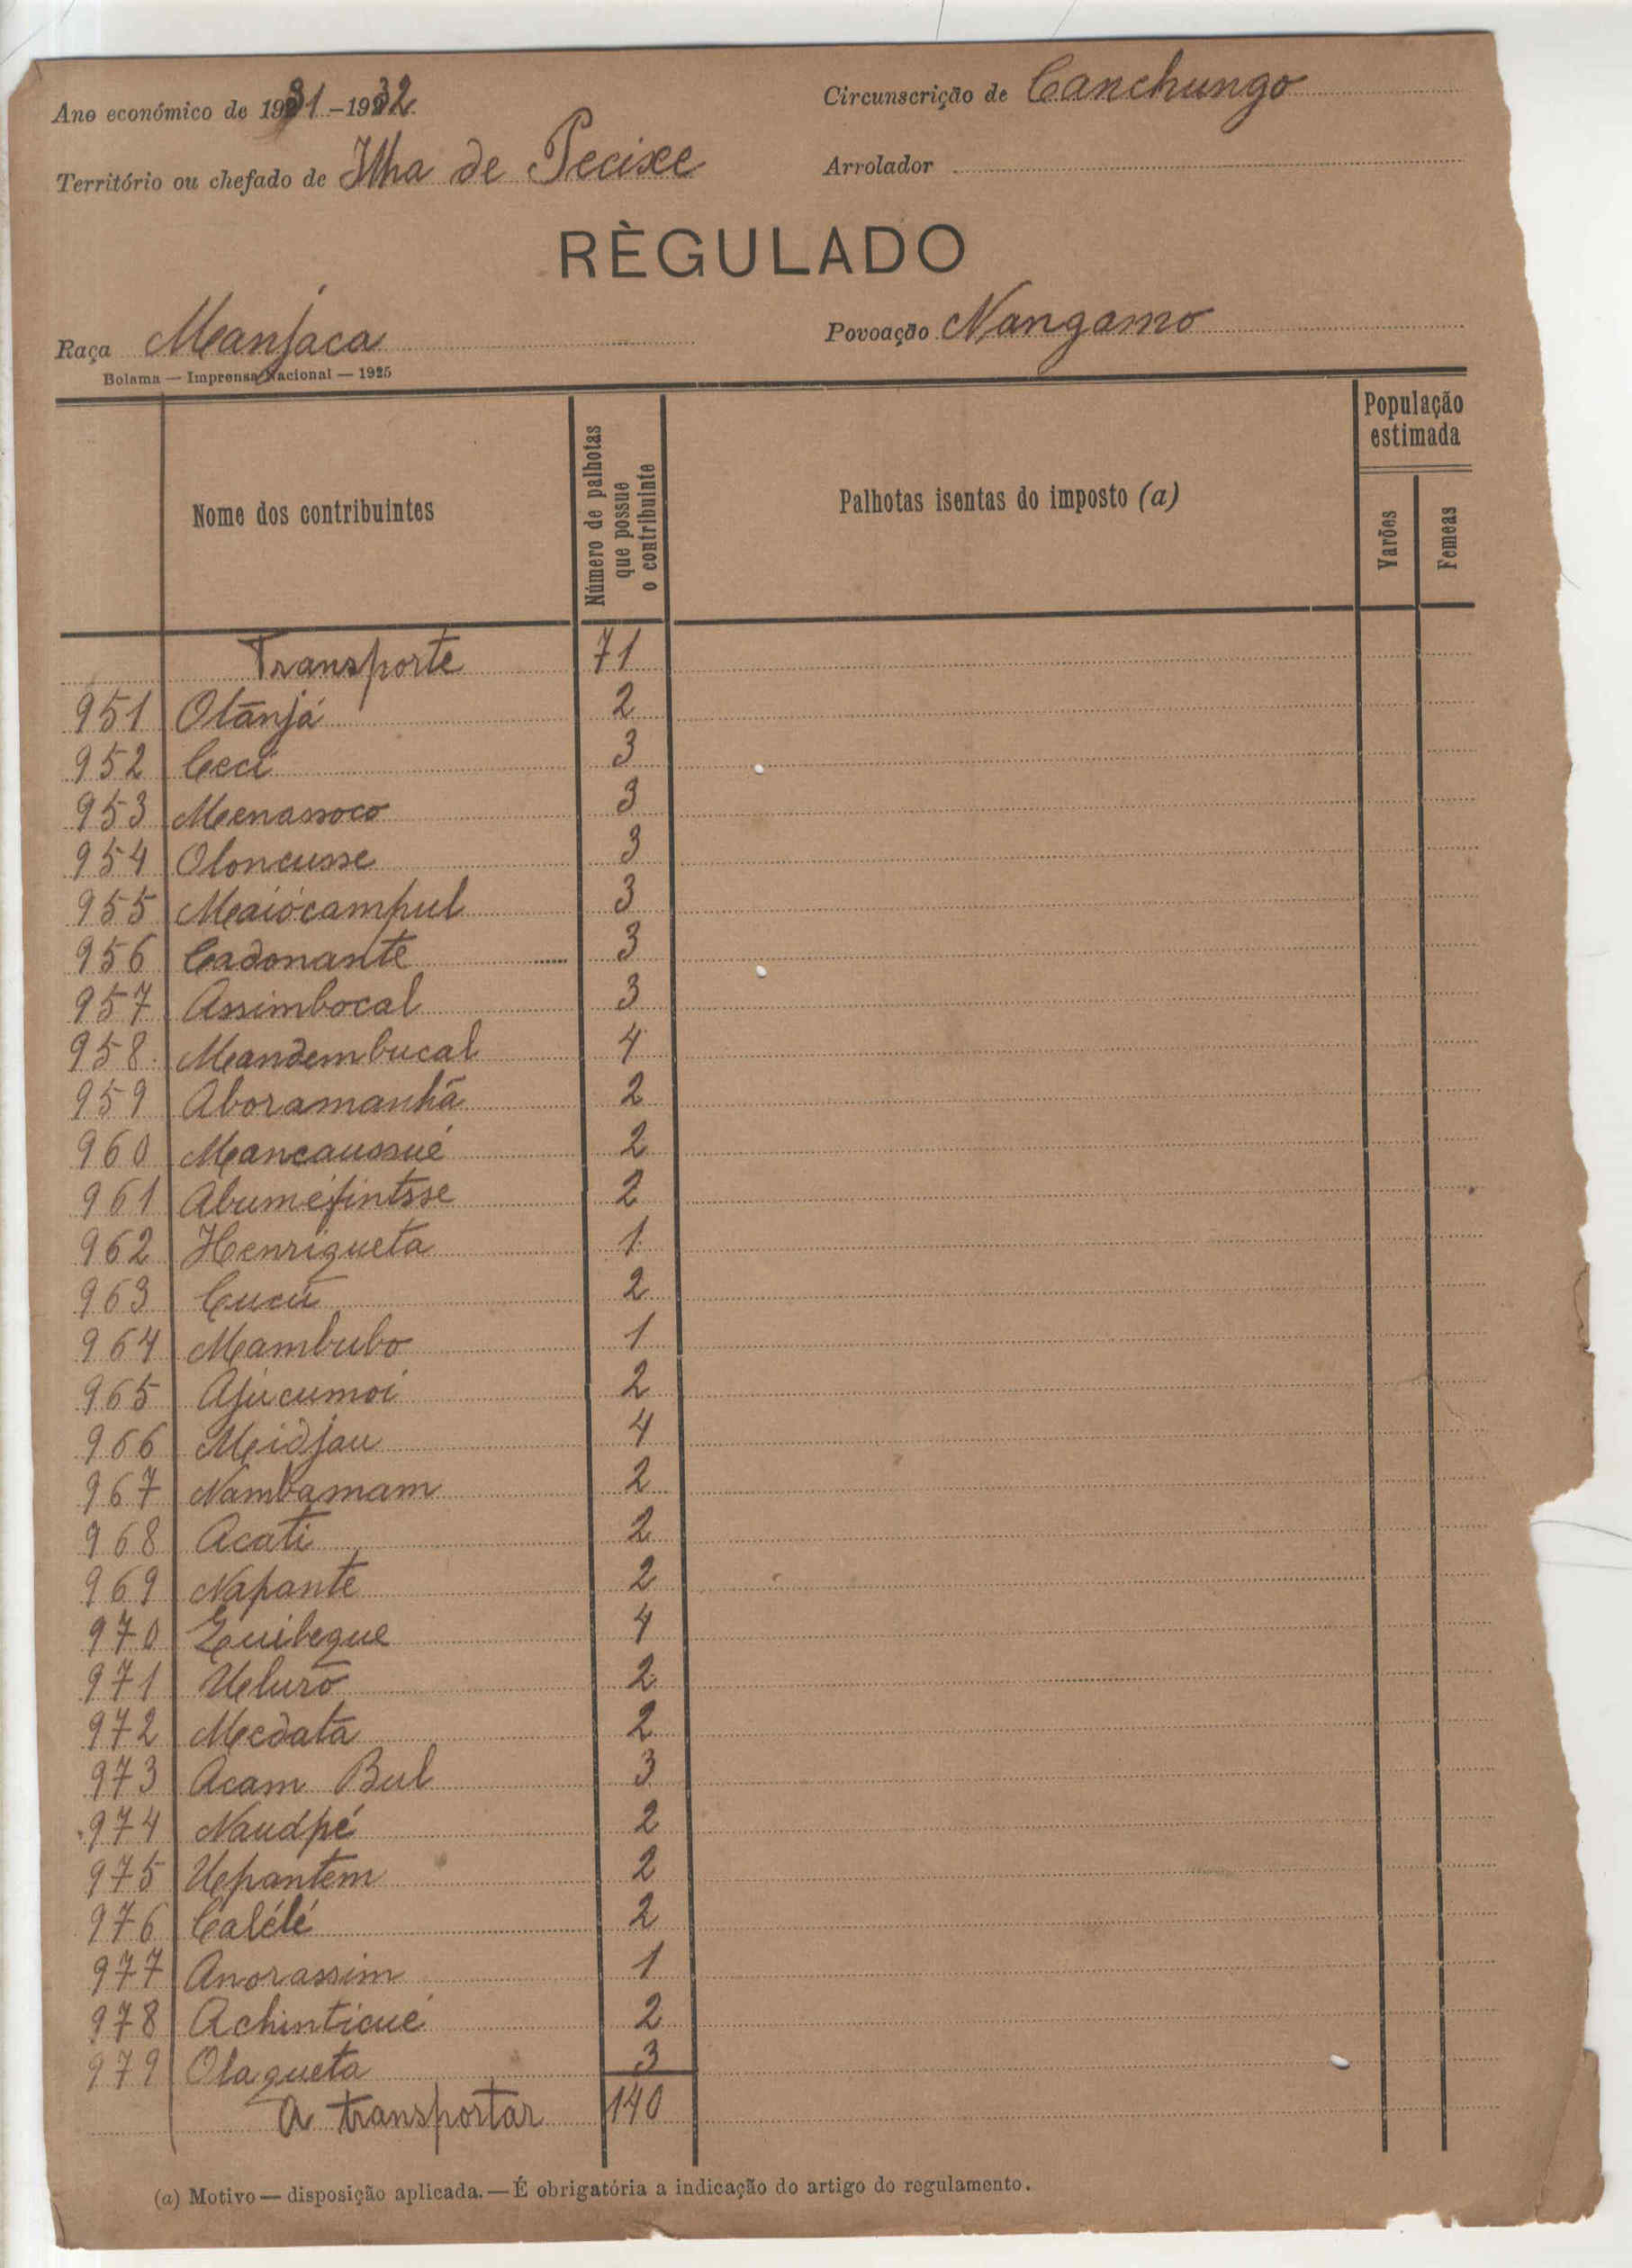 Ano económico de 1931-1932
Circunscrição de Canchungo
Território ou chefado de Ilha de Pecixe
Arrolador
RÈGULADO
Raça Manjaca
Povoação Nangamo
Bolama — Imprensa Nacional — 1925
Nome dos contribuintes
Número de palhotas
que possue
o contribuinte
Palhotas isentas do imposto (a)
População
estimada
Varões
Femeas
Transporte 71
951 Otãnjá 2
952 Ceci 3
953 Menassoco 3
954 Oloncusse 3
955 Maiócampul 3
956 Cadonante 3
957 Assimbocal 3
958 Mandembucal 4
959 Aboramanhã 2
960 Mancaussué 2
961 Abuméfintsse 2
962 Henriqueta 1
963 Cucú 2
964 Mambubo 1
965 Ajúcumoi 2
966 Meidjau 4
967 Nambamam 2
968 Acati 2
969 Napante 2
970 Euibeque 4
971 Ueluró 2
972 Mecdata 2
973 Acam Bul 3
974 Naudpé 2
975 Uepantem 2
976 Calélé 2
977 Anorassim 1
978 Achinticué 2
979 Olaqueta 3
A transportar 140
(a) Motivo — disposição aplicada. — É obrigatória a indicação do artigo do regulamento.